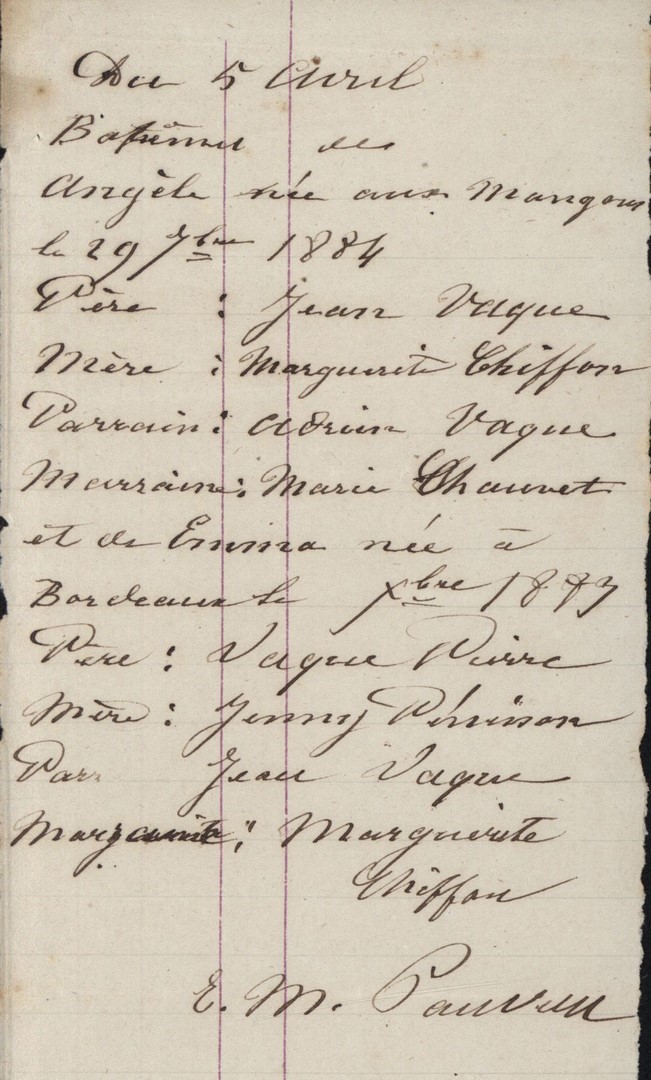 Du 5 Avril
Baptême des
Angèle née aux Mangous
le 29 7bre 1884
Père : Jean Vaque
Mère : Marguerite Chiffon
Parrain : Adrien Vaque
Marraine : Marie Chauvet
et de Emma née à
Bordeaux le Xbre 1883
Père : Vaque Pierre
Mère : Jenny
Parr Jean Vaque
Marguerite
Chiffon
E. M.